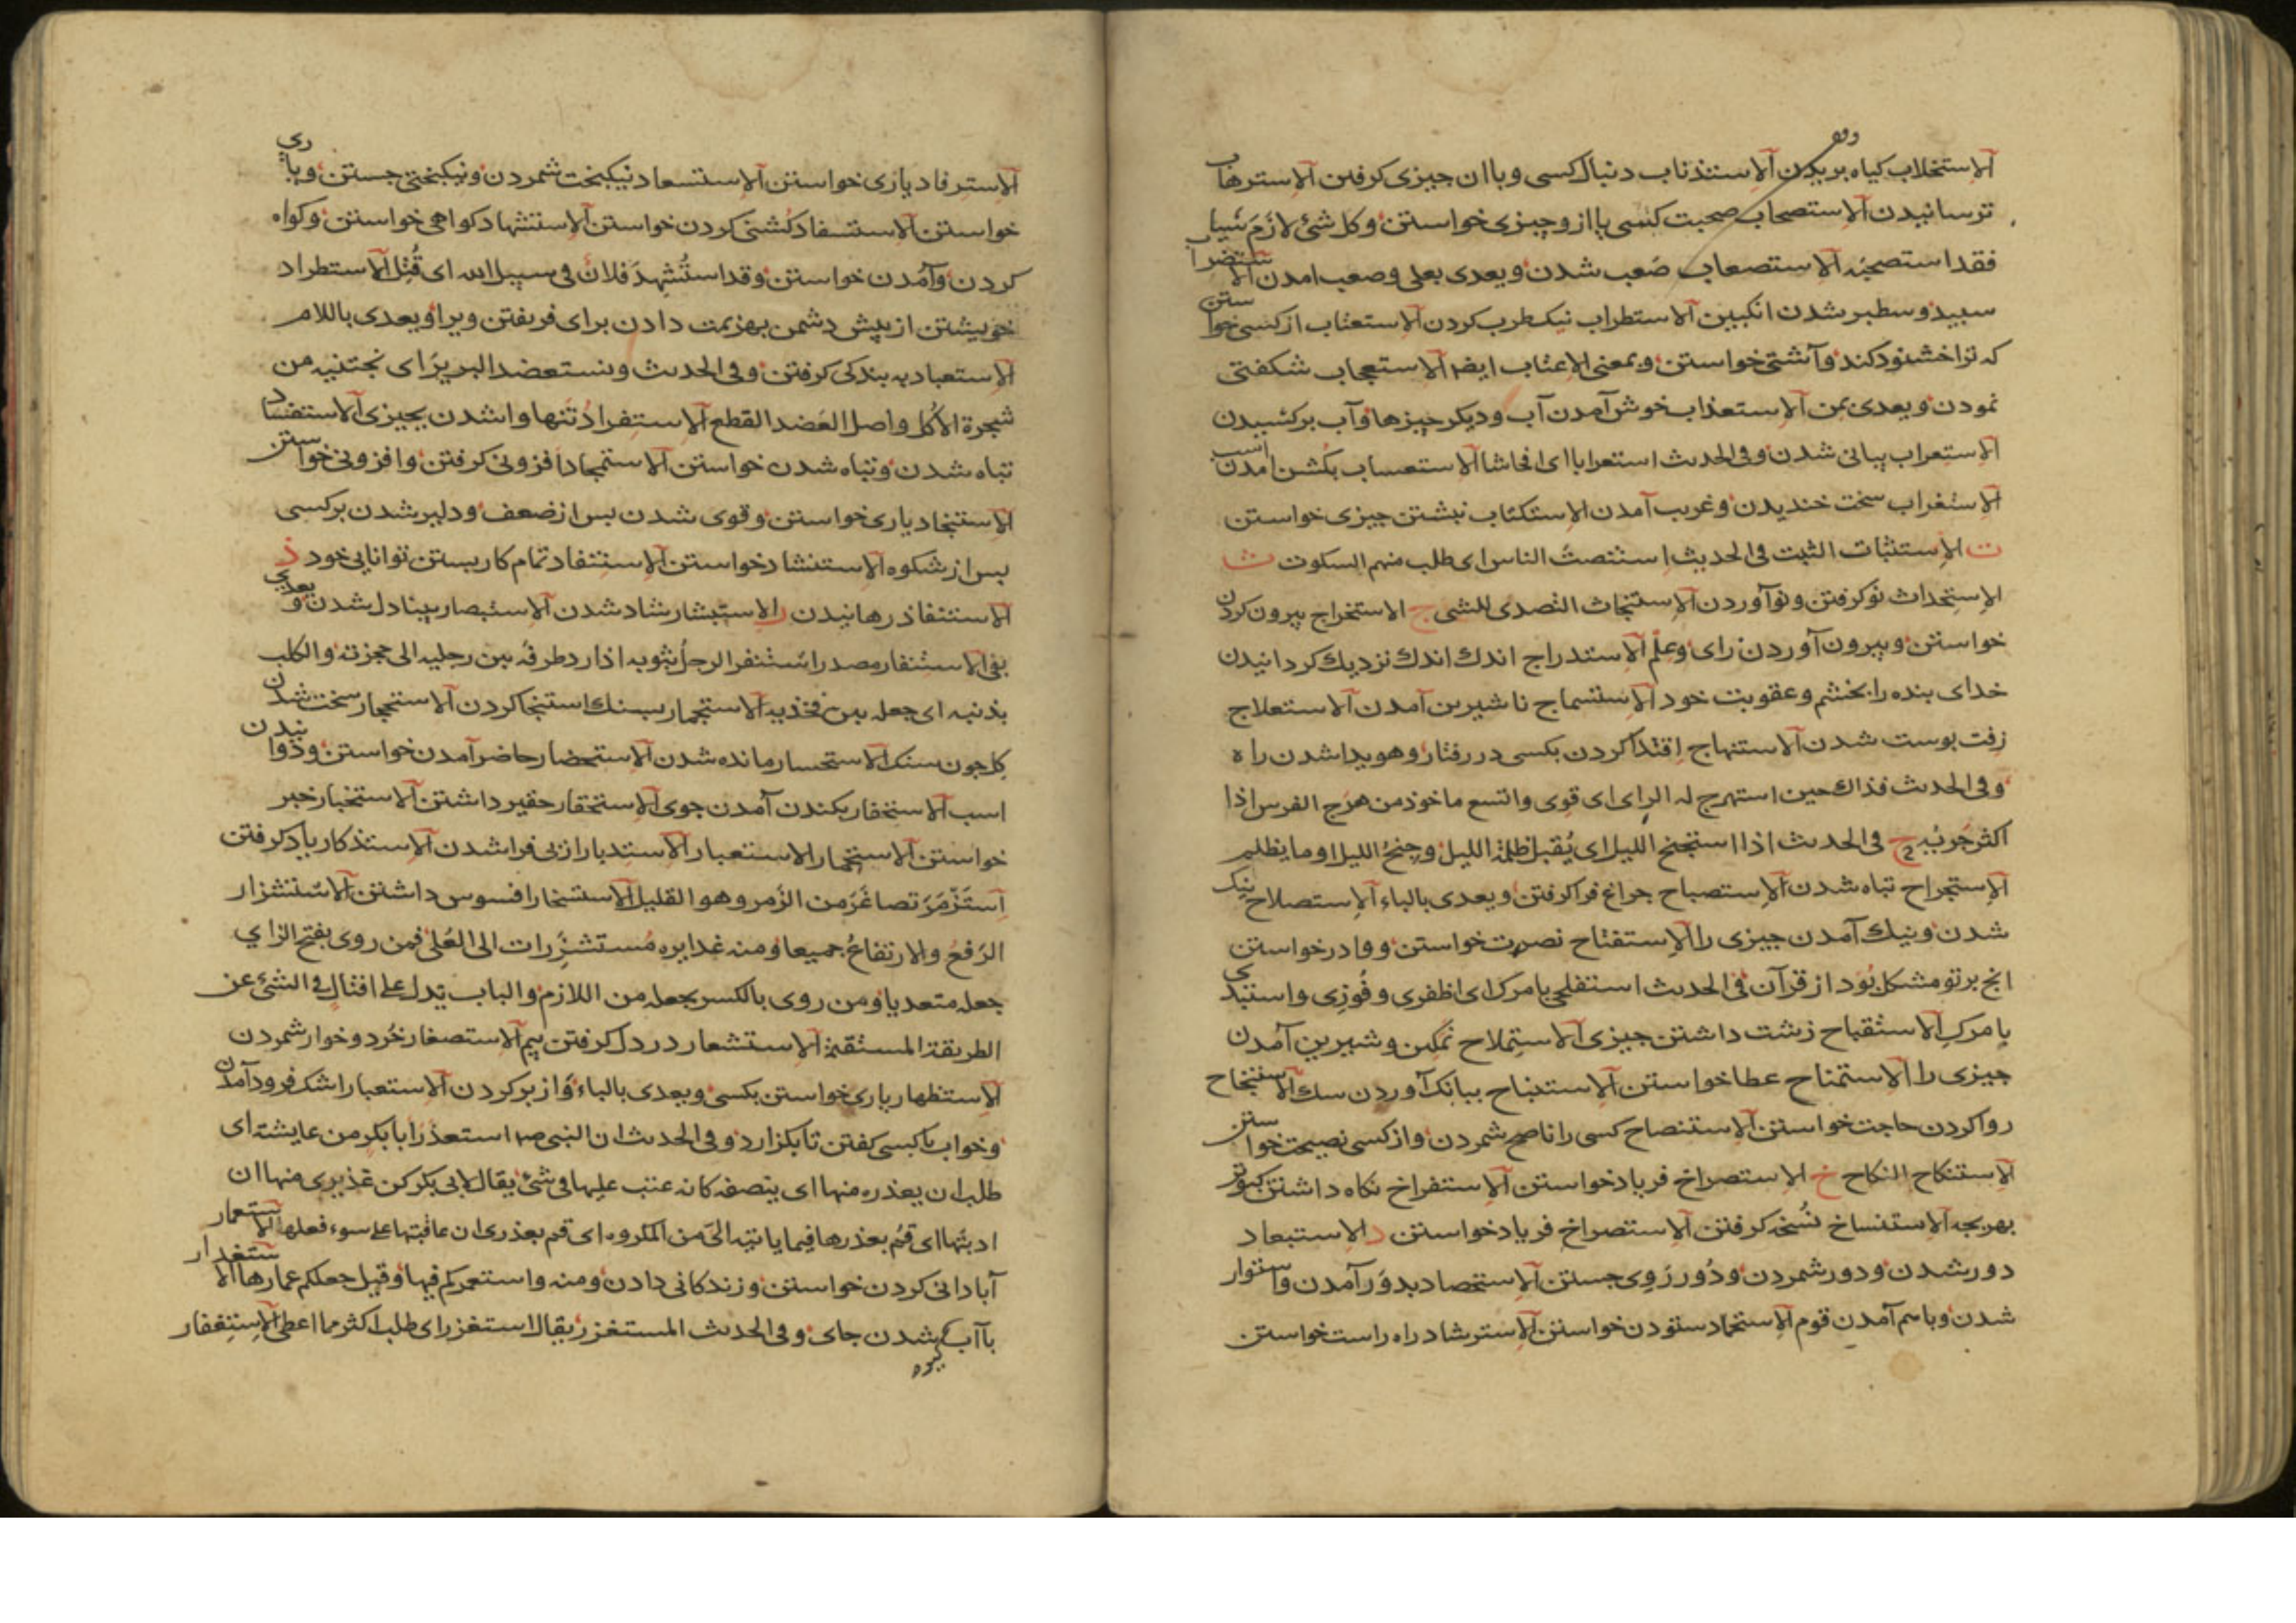 الاستخلاب کیاه بریدن الاستذناب دنبال کسی وباان جیزی کرفتن الاسترهاب
ترسانیدن الاستصحاب صحبت کسی یا ازو جیزی خواستن وکل شئ لازم شیا
فقد استصحبه الاستصعاب صعب شدن ویعدی بعلی وصعب امدن الاستضراب
سبید وسطبر شدن انکبین الاستطراب نیک طرب کردن الاستعتاب از کسی خواستن
که ترا خشنود کند وآشتی خواستن وبمعنی الاعتاب ایضا الاستعجاب شکفتی
نمودن ویعدی بمن الاستعذاب خوش آمدن آب ودیکر جیزها وآب برکشیدن
الاستعراب بیانی شدن وفی الحدیث استعرابا ای افحاشا الاستعساب بکشن امدن اسب
الاستغراب سخت خندیدن وغریب آمدن الاستکتاب نبشتن جیزی خواستن
ت الاستثبات الثبت فی الحدیث استنصت الناس ای طلب منهم السکوت ث
الاستحداث نو کرفتن ونو آوردن الاستنجاث التصدی للشی ج الاستخراج بیرون کردن
خواستن وبیرون آوردن رای وعلم الاستدراج اندك اندك نزدیك کردانیدن
خدای بنده را بخشم وعقوبت خود الاستسماج ناشیرین آمدن الاستعلاج
زفت بوست شدن الاستنهاج اقتدا کردن بکسی در رفتار وهویدا شدن راه
وفی الحدیث فذاك حین استهرج له الرای ای قوی واتسع ماخوذ من هرج الفرس اذا
اکثر جریه ح فی الحدیث اذا استجنح اللیل ای یقبل ظلمة اللیل وجنح اللیل اول ما یظلم
الاستجراح تباه شدن الاستصباح جراغ فرا کرفتن ویعدی بالباء الاستصلاح نیك
شدن ونیك آمدن جیزی را الاستفتاح نصرت خواستن ووا در خواستن
انج بر تو مشکل بود از قرآن فی الحدیث استفلحی بامرك ای اظفری وفوزی واستبدی
بامرك الاستقباح زشت داشتن جیزی الاستملاح نمکین وشیرین آمدن
جیزی را الاستمناح عطا خواستن الاستنباح ببانك آوردن سك الاستنجاح
روا کردن حاجت خواستن الاستنصاح کسی را ناصح شمردن واز کسی نصیحت خواستن
الاستنکاح النکاح خ الاستصراخ فریاد خواستن الاستفراخ نکاه داشتن کبوتر
بهر بجه الاستنساخ نسخه کرفتن الاستصراخ فریاد خواستن د الاستبعاد
دور شدن ودور شمردن ودور روی جستن الاستحصاد بدو رآمدن واستوار
شدن وباسم آمدن قوم الاستحماد ستودن خواستن الاسترشاد راه راست خواستن
الاسترفاد یاری خواستن الاستسعاد نیکبخت شمردن ونیکبختی جستن ویاری
خواستن الاستسفاد کشنی کردن خواستن الاستشهاد کواهی خواستن وکواه
کردن وآمدن خواستن وقد استشهد فلان فی سبیل الله ای قتل الاستطراد
خویشتن از پیش دشمن بهزیمت دادن برای فریفتن ویرا ویعدی باللام
الاستعباد به بندکی کرفتن وفی الحدیث ونستعضد البریر ای نجتنیه من
شجرة الاکل واصل العضد القطع الاستفراد تنها واشدن بجیزی الاستفساد
تباه شدن وتباه شدن خواستن الاستمجاد افزونی کرفتن وافزونی خواستن
الاستنجاد یاری خواستن وقوی شدن بس از ضعف ودلیر شدن بر کسی
بس از شکوه الاستنشاد خواستن الاستنفاد تمام کار بستن توانایی خود ذ
الاستنقاذ رهانیدن ر الاستبشار شاد شدن الاستبصار بینا دل شدن ویعدی
بفی الاستثفار مصدر استثفر الرجل بثوبه اذا رد طرفه بین رجلیه الی حجزته والکلب
بذنبه ای جعله بین فخذیه الاستجمار بسنك استنجا کردن الاستحجار سخت شدن
کل جون سنك الاستحسار مانده شدن الاستحضار حاضر آمدن خواستن ودوانیدن
اسب الاستحفار بکندن آمدن جوی الاستحقار حقیر داشتن الاستخبار خبر
خواستن الاستخمار الاستعبار الاستدبار از بی فرا شدن الاستذکار یاد کرفتن
استزمر تصاغر من الزمر وهو القلیل الاستسخار افسوس داشتن الاستشزار
الرفع والارتفاع جمیعا ومنه غدایره مستشزرات الی العلی فمن روی بفتح الزای
جعله متعدیا ومن روی بالکسر یجعله من اللازم والباب یدل علی افتال فی الشئ عن
الطریقة المستقیمة الاستشعار در دل کرفتن بیم الاستصغار خرد وخوار شمردن
الاستظهار یاری خواستن بکسی ویعدی بالباء واز بر کردن الاستعبار اشك فرود آمدن
وخواب با کسی کفتن تا بکزارد وفی الحدیث ان النبی صم استعذر ابا بکر من عایشة ای
طلب ان یعذره منها ای ینصفه کانه عتب علیها فی شئ یقال لابی بکر کن عذیری منها ان
ادبتها ای قم بعذرها فیما یاتیه الی من المکروه ای قم بعذری ان عاقبتها علی سوء فعلها الاستعمار
آبادانی کردن خواستن وزندکانی دادن ومنه واستعمرکم فیها وقیل جعلکم عمارها الاستغدار
باآب شدن جای وفی الحدیث المستغزر یقال استغزر ای طلب اکثر مما اعطی الاستغفار